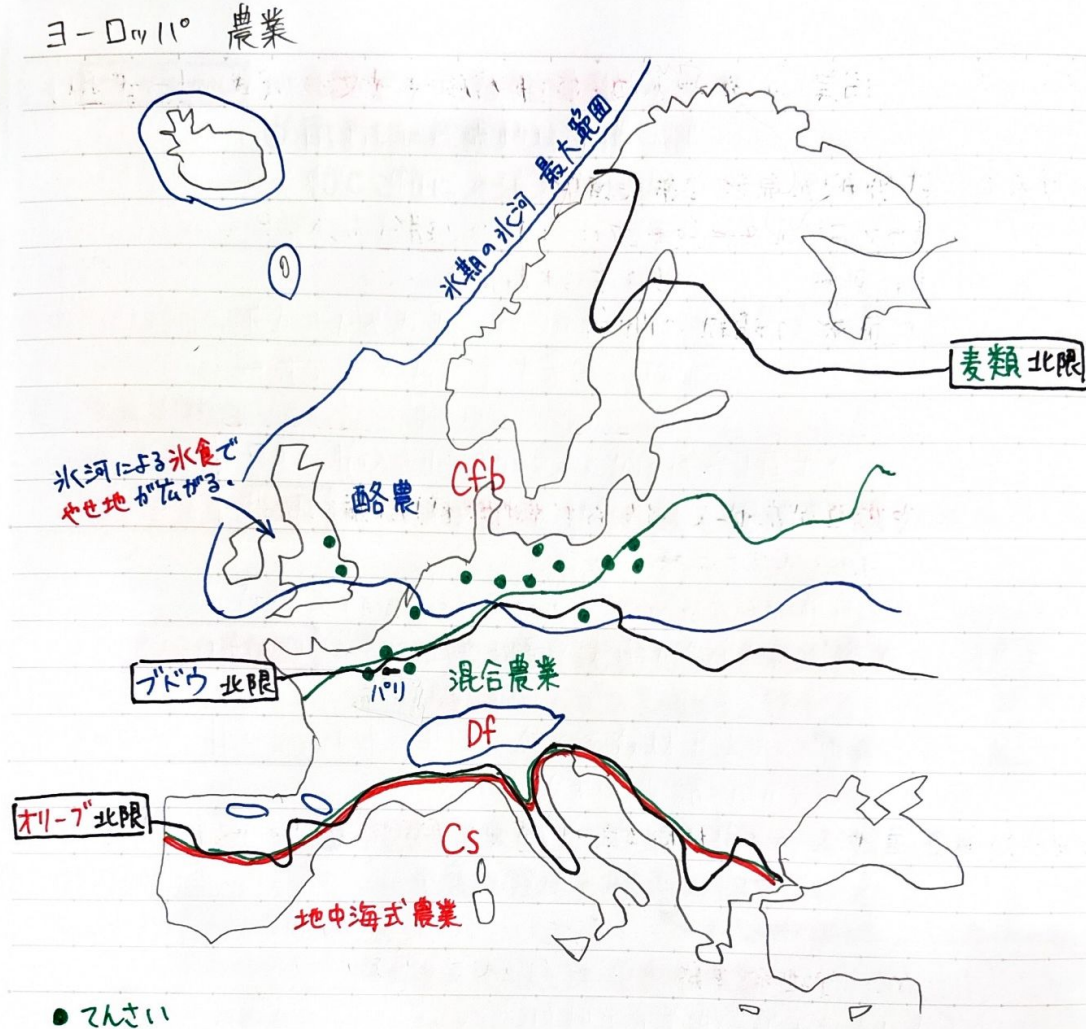 ヨーロッパ 農業
氷期の氷河 最大範囲
麦類 北限
氷河による氷食で
やせ地が広がる.
酪農
Cfb
ブドウ 北限
パリ
混合農業
Df
オリーブ 北限
Cs
地中海式農業
てんさい